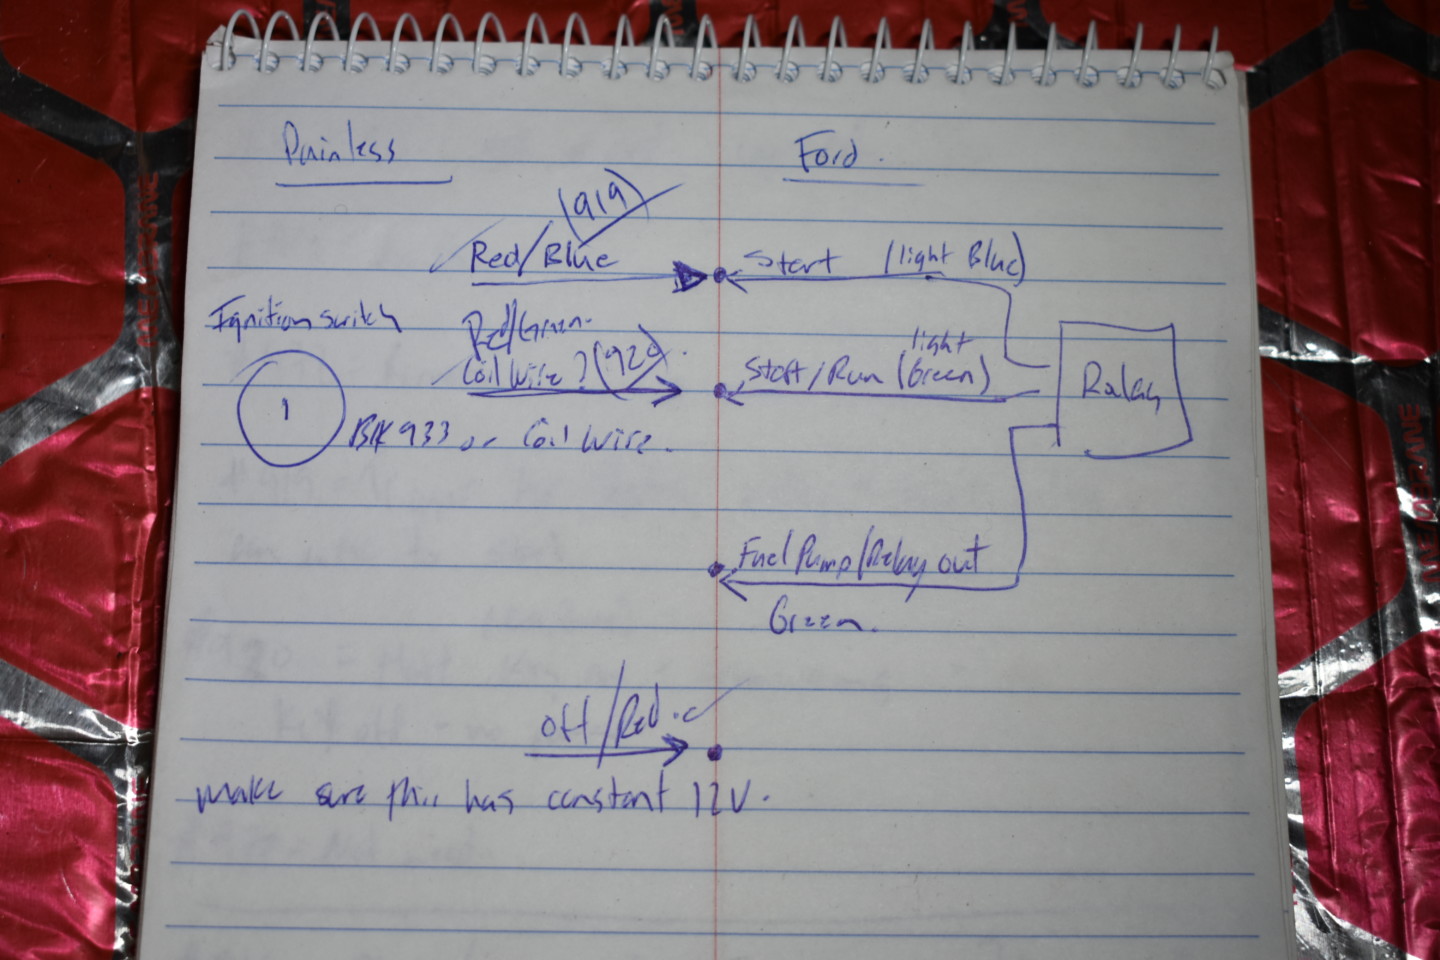 Painless
Ford.
(919)
Red/Blue
Start (light Blue)
Ignition switch
Red/Green.
Coil Wire? (920)
light
Start/Run (Green)
Relay
1
BLK 933 or Coil Wire.
Fuel Pump/Relay out
Green.
off/Red.
make sure this has constant 12V.